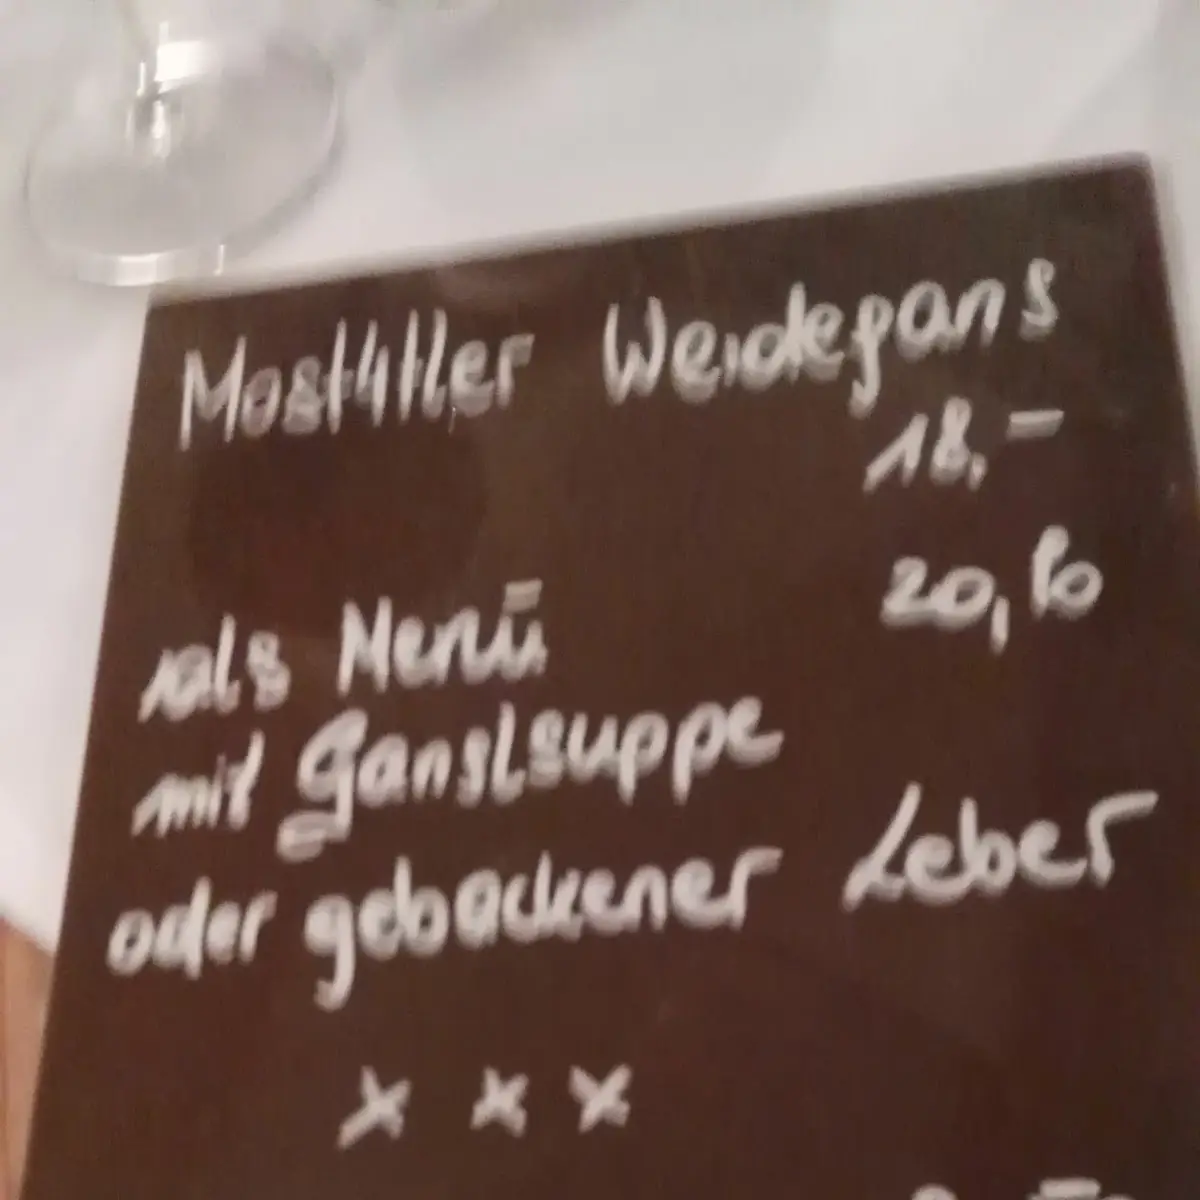 Most4tler Weidegans
18,-
20,80
als Menü
mit Ganslsuppe
oder gebackener Leber
x x x